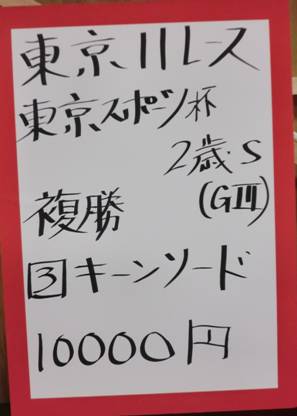 東京11レース
東京スポーツ杯
2歳・S
(GIII)
複勝
3 キーンソード
10000円